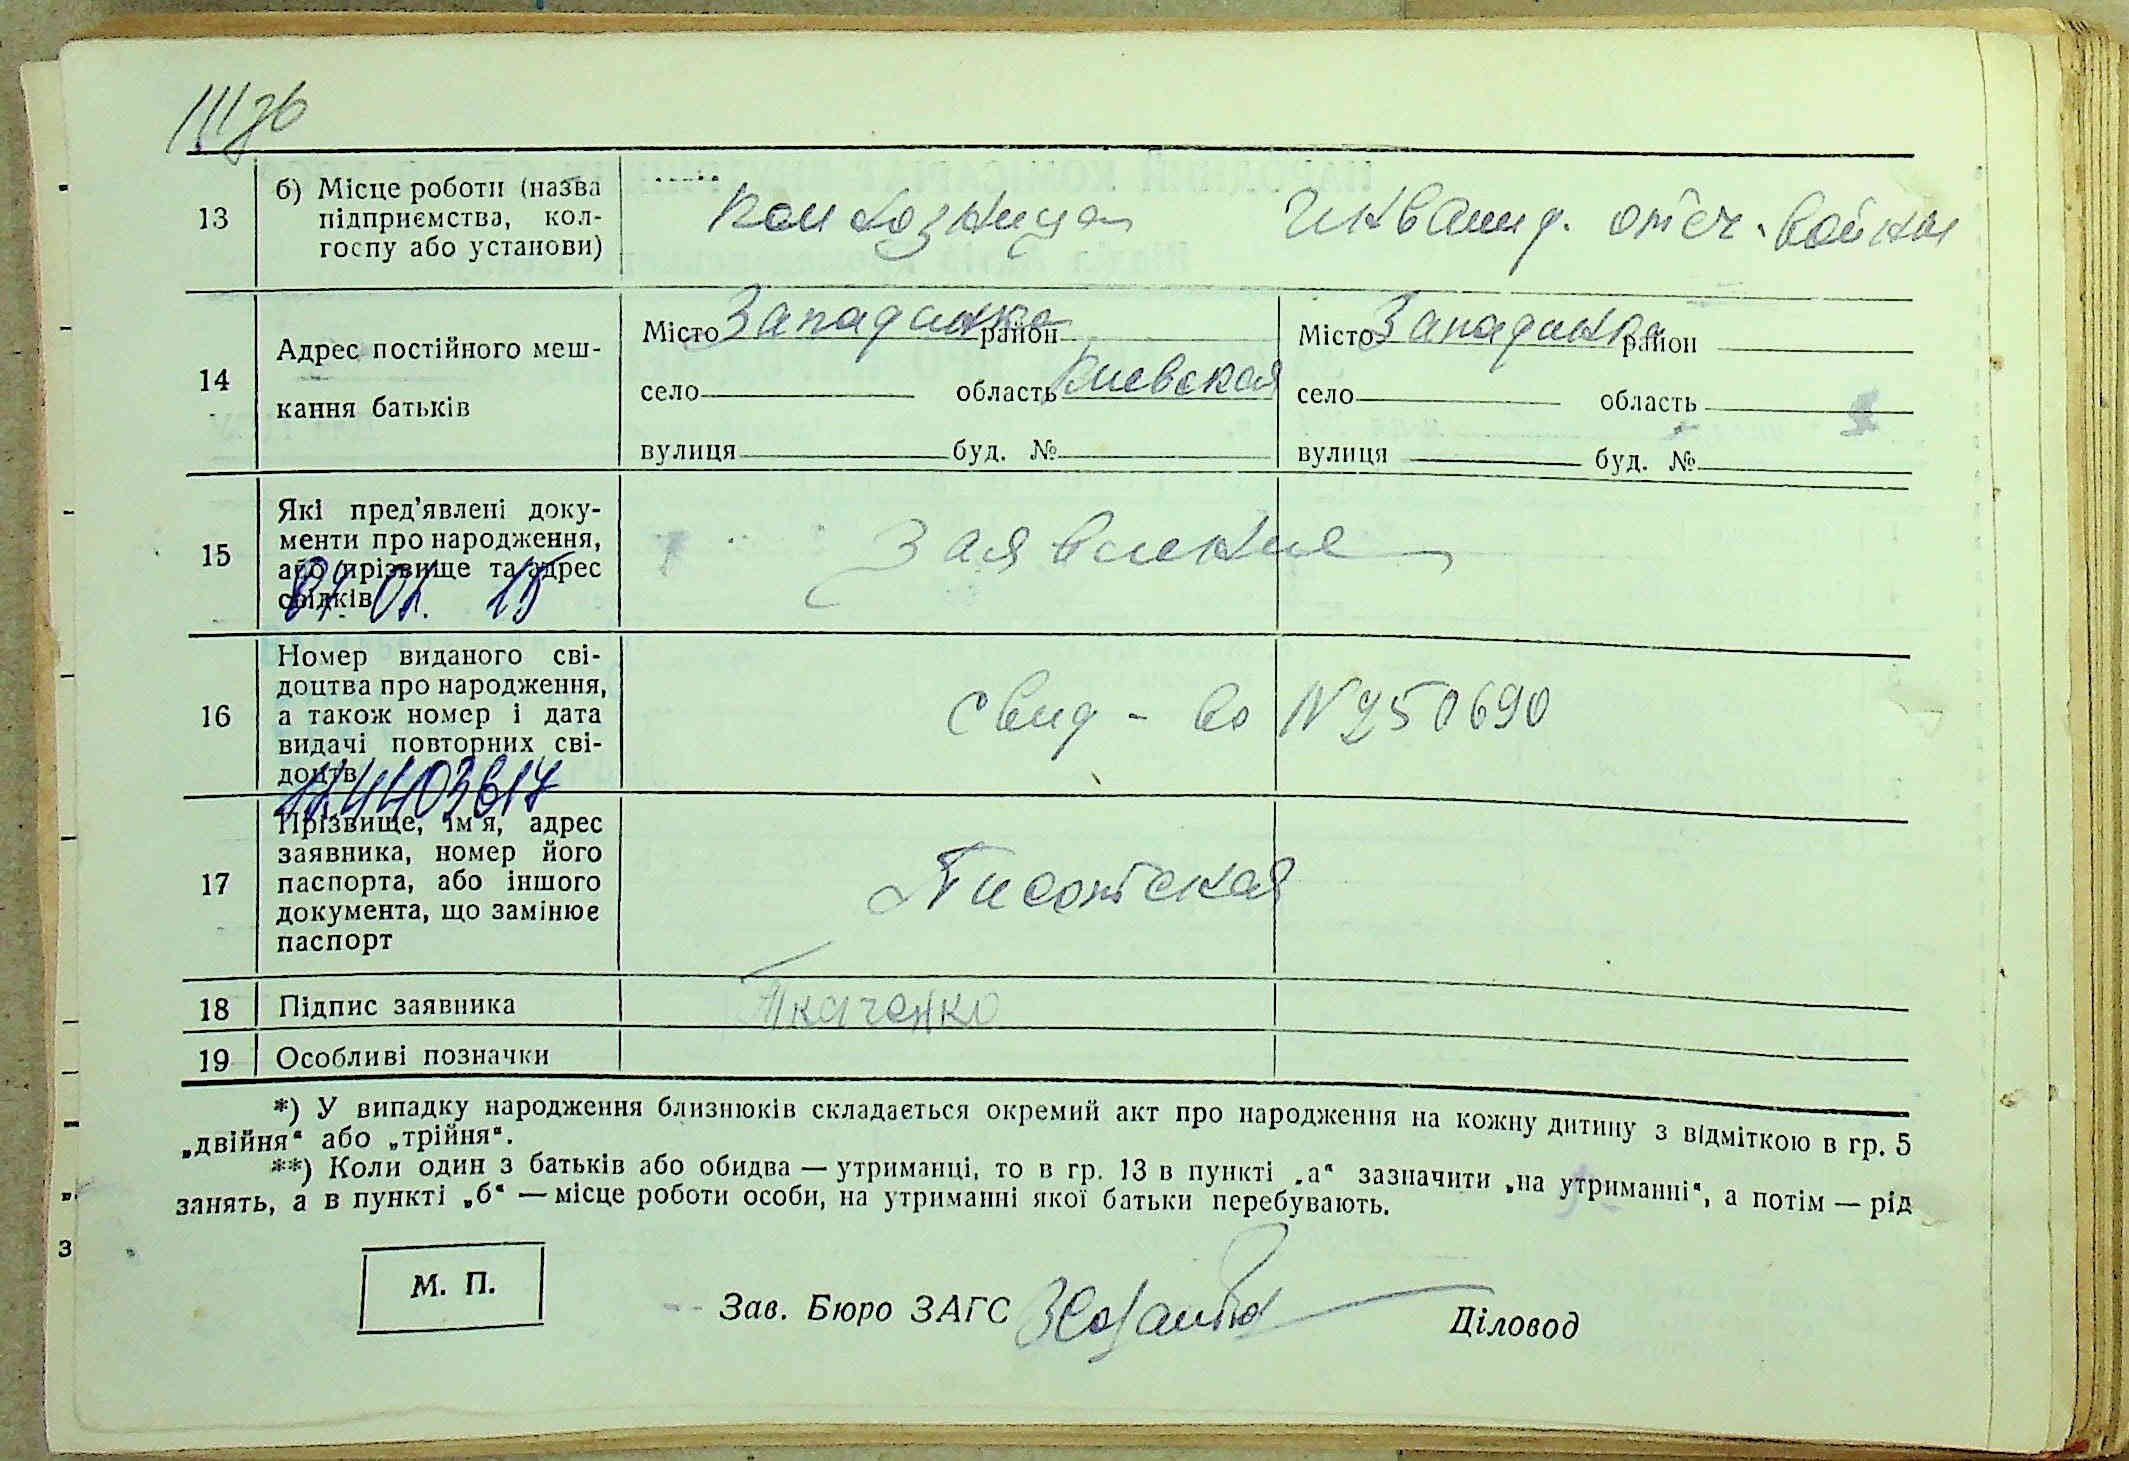 13
б) Місце роботи (назва
підприємства, кол-
госпу або установи)
Колхозница
Инвалид. отеч. войны
14
Адрес постійного меш-
кання батьків
Місто Западинка район
село область Киевская
вулиця буд. №
Місто Западинка район
село область
вулиця буд. №
15
Які пред'явлені доку-
менти про народження,
або прізвище та адрес
свідків
07. 02. 15
Заявление
16
Номер виданого сві-
доцтва про народження,
а також номер і дата
видачі повторних сві-
доцтв
Свид-во N 250690
17
Прізвище, ім'я, адрес
заявника, номер його
паспорта, або іншого
документа, що замінює
паспорт
18
Підпис заявника
Ткаченко
19
Особливі позначки
*) У випадку народження близнюків складається окремий акт про народження на кожну дитину з відміткою в гр. 5
„двійня“ або „трійня“.
**) Коли один з батьків або обидва — утриманці, то в гр. 13 в пункті „а“ зазначити „на утриманні“, а потім — рід
занять, а в пункті „б“ — місце роботи особи, на утриманні якої батьки перебувають.
З
М. П.
Зав. Бюро ЗАГС
Діловод